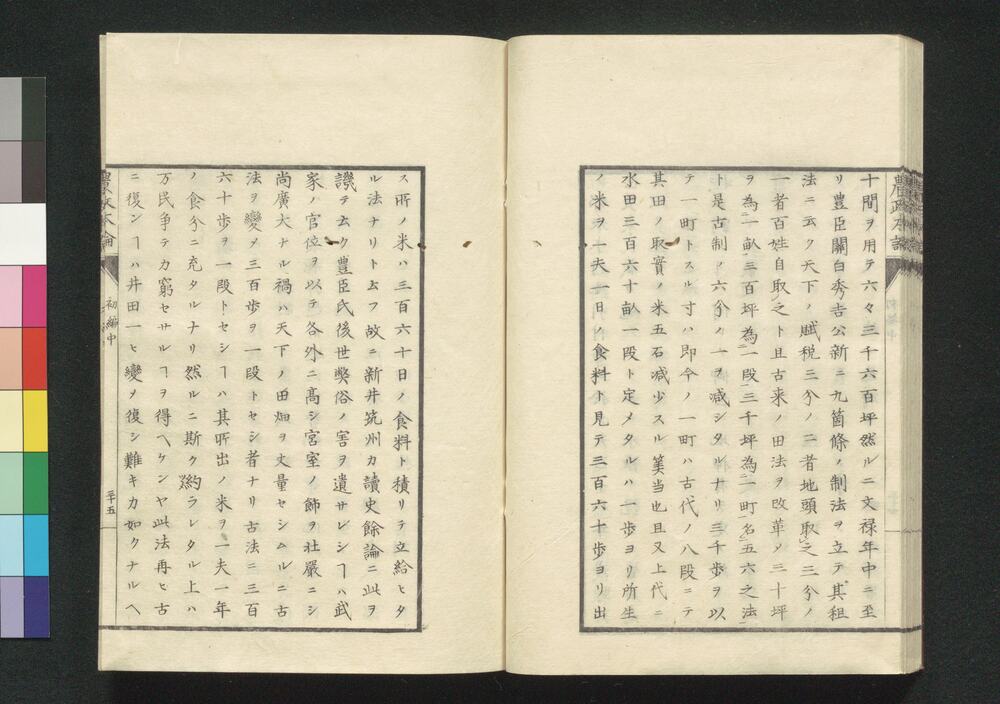 十間ヲ用テ六々三千六百坪然ルニ文禄年中ニ至
リ豊臣關白秀吉公新ニ九箇條ノ制法ヲ立テ其租
法ニ云ク天下ノ賦税三分ノ二者地頭取之三分ノ
一者百姓自取之ト且古来ノ田法ヲ改革メ三十坪
ヲ為一畝三百坪為一段三千坪為一町名五六之法
ト是古制ノ六分ノ一ヲ減シタルナリ三千歩ヲ以
テ一町トスル寸ハ即今ノ一町ハ古代ノ八段ニテ
其田ノ取實ノ米五石減少スル筭当也且又上代ニ
水田三百六十畝一段ト定メタルハ一歩ヨリ所生
ノ米ヲ一夫一日ノ食料ト見テ三百六十歩ヨリ出
ス所ノ米ハ三百六十日ノ食料ト積リテ立給ヒタ
ル法ナリト云フ故ニ新井筑州カ讀史餘論ニ此ヲ
譏テ云ク豊臣氏後世弊俗ノ害ヲ遺サレシヿハ武
家ノ官位ヲ以テ各外ニ髙シ宮室ノ飾ヲ壮嚴ニシ
尚廣大ナル禍ハ天下ノ田畑ヲ丈量セシムルニ古
法ヲ變メ三百歩ヲ一段トセシ者ナリ古法ニ三百
六十歩ヲ一段トセシヿハ其所出ノ米ヲ一夫一年
ノ食分ニ充タルナリ然ルニ斯ク約ラレタル上ハ
万民争テカ窮セサルヿヲ得ヘケンヤ此法再ヒ古
ニ復ンヿハ井田一ヒ變メ復シ難キカ如クナルヘ
農政本論
初編中
二十五